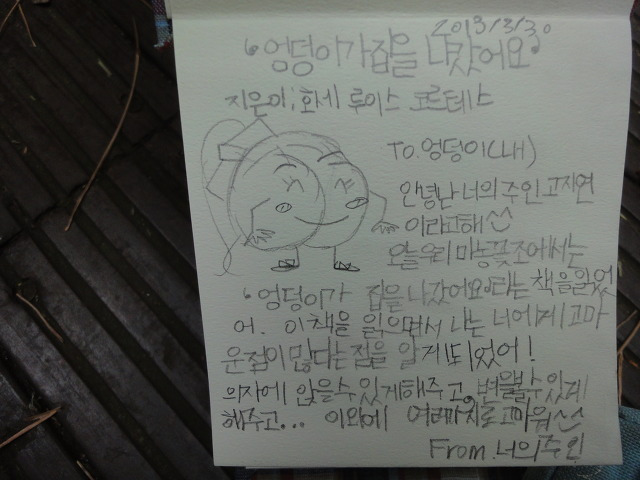 2013/3/30
"엉덩이가 집을 나갔어요"
지은이 : 호세 루이스 코르테스
To. 엉덩이(내)
안녕 난 너의 주인 고지연
이라고 해^^
오늘 우리 마농꽃조에서는
"엉덩이가 집을 나갔어요"라는 책을 읽었
어. 이 책을 읽으면서 나는 너에게 고마
운점이 많다는 점을 알게 되었어!
의자에 앉을 수 있게 해주고, 변볼 수 있게
해주고... 이외에 여러가지로 고마워^^
From. 너의 주인